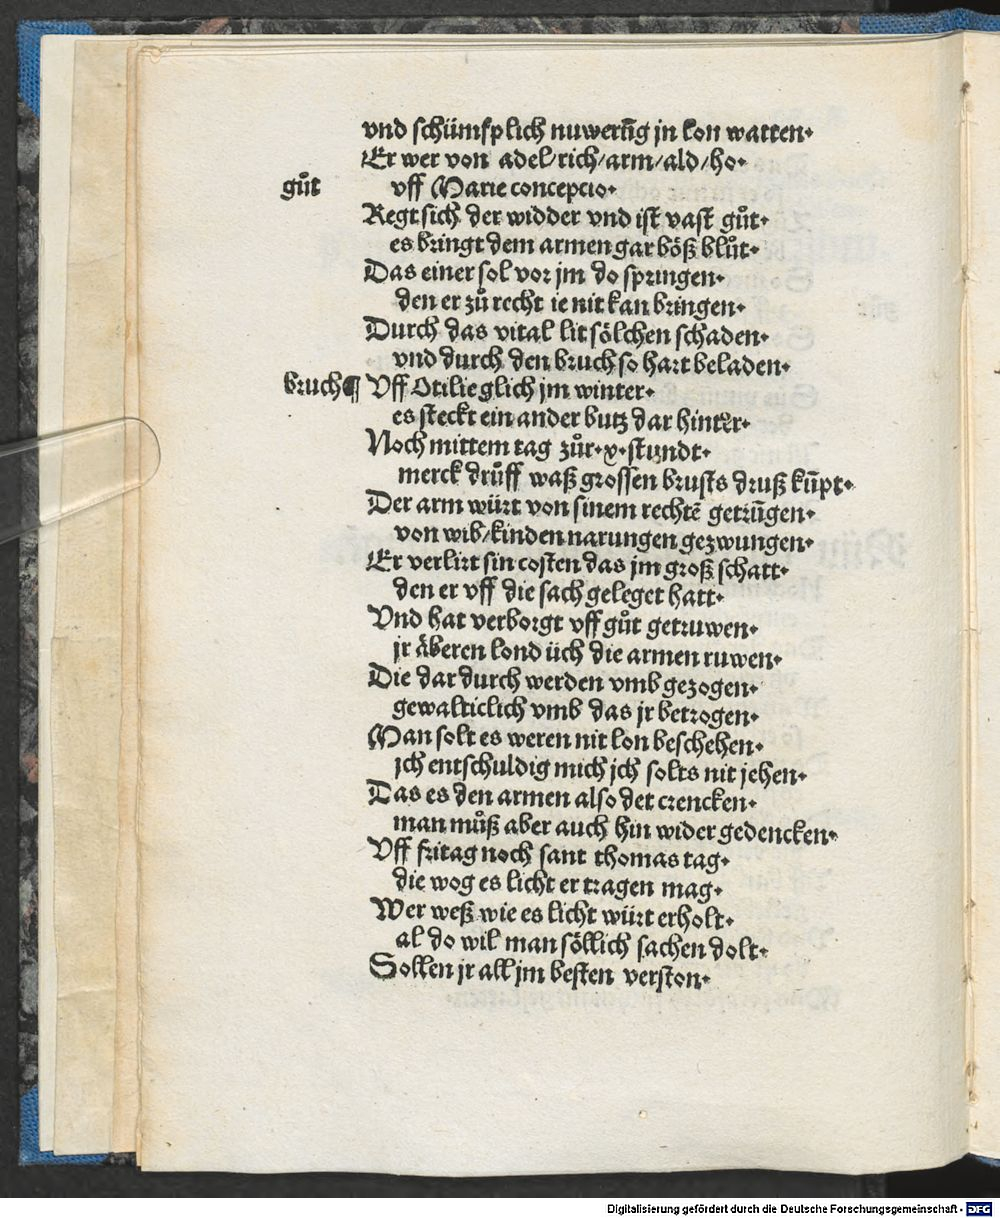 vnd schümfplich nuwerūg jn lon watten.
Er wer von adel/rich/arm/ald/ho.
gůt vff Marie concepcio.
Regt sich der widder vnd ist vast gůt.
es bringt dem armen gar böß blůt.
Das einer sol vor jm do springen.
den er zů recht ie nit kan bringen.
Durch das vital lit sölchen schaden.
vnd durch den bruch so hart beladen.
bruch ¶ Vff Otilie glich jm winter.
es steckt ein ander butz dar hinter.
Noch mittem tag zůr.x.stundt.
merck drůff waß grossen brusts druß kūpt.
Der arm würt von sinem rechtē getrūgen.
von wib/kinden narungen gezwungen.
Er verlirt sin costen das jm groß schatt.
den er vff die sach geleget hatt.
Vnd hat verborgt vff gůt getruwen.
jr äberen lond üch die armen ruwen.
Die dar durch werden vmb gezogen.
gewalticlich vmb das jr betrogen.
Man solt es weren nit lon beschehen.
jch entschuldig mich jch solts nit jehen.
Das es den armen also det crencken.
man můß aber auch hin wider gedencken.
Vff fritag noch sant thomas tag.
die wog es licht er tragen mag.
Wer weß wie es licht würt erholt.
al do wil man söllich sachen dolt.
Sollen jr all jm besten verston.
Digitalisierung gefördert durch die Deutsche Forschungsgemeinschaft - DFG